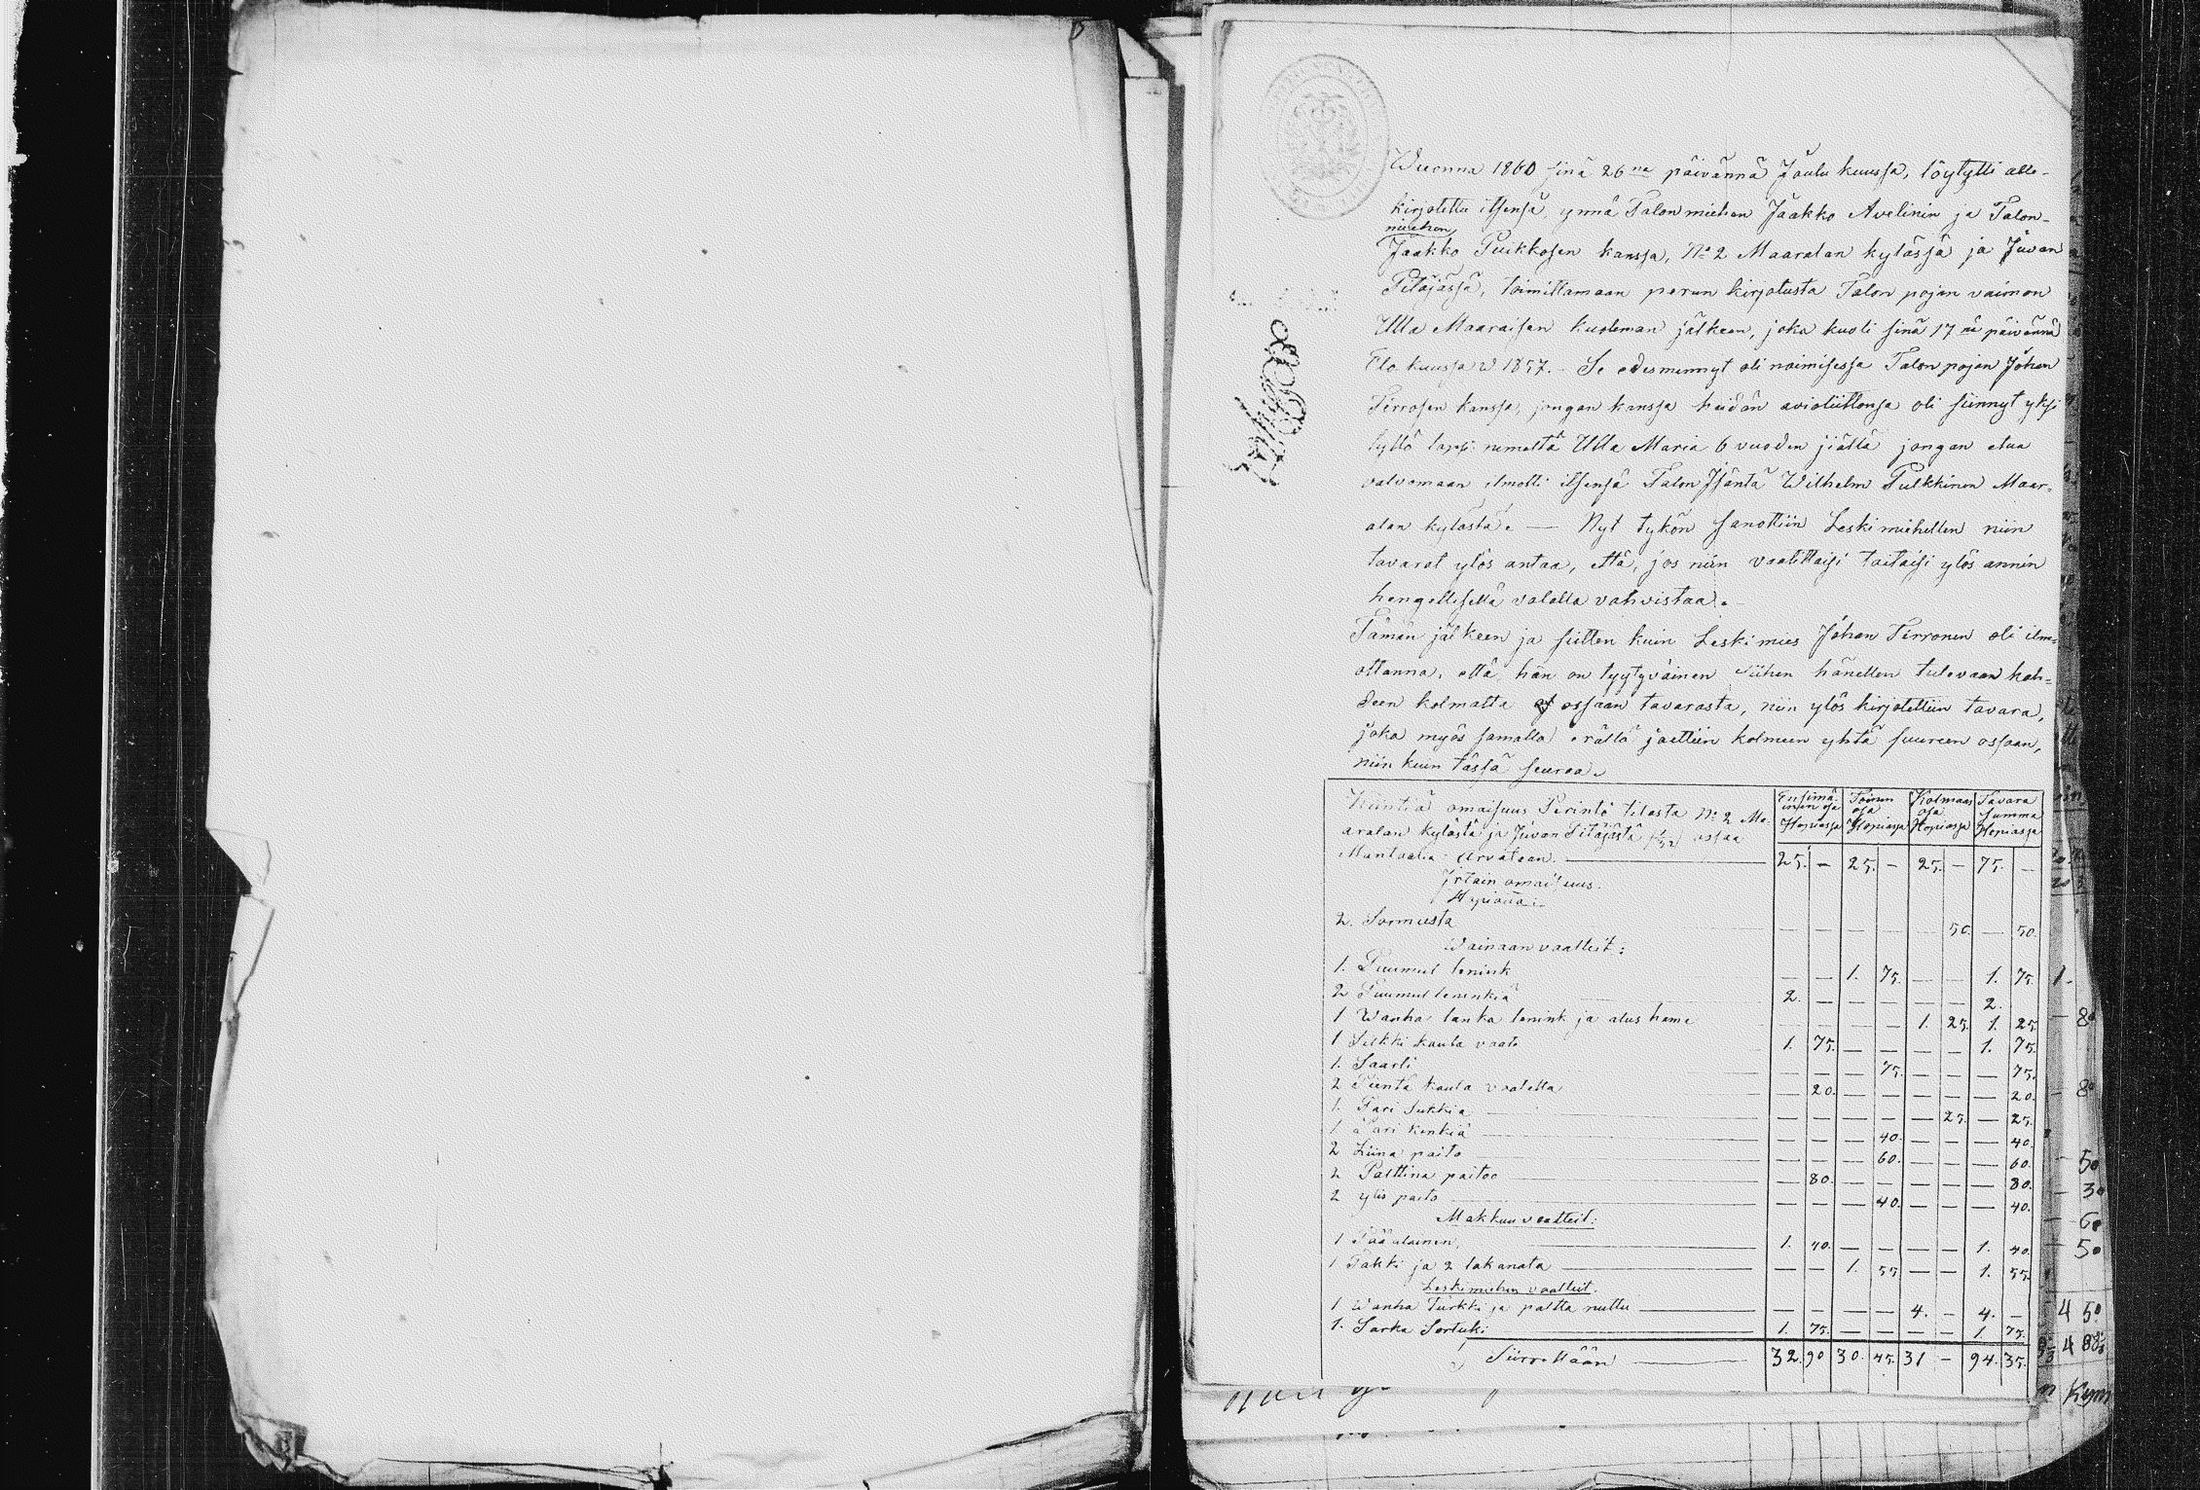 Wuonna 1860 sinä 26na päivännä Joulu kuussa, löytytti alle-
kirjotettu itsensä, ynnä Talonmiehen Jaakko Avelinin ja Talon-
miehen
Jaakko Puikkosen kanssa, No 2 Maaralan kylässä ja Juvan
Pitäjässä, toimittamaan perun kirjotusta Talon pojan vaimon
Ulla Maaraisen kuoleman jälkeen, joka kuoli sinä 17nä päivännä
Elo kuussa v 1857. - Se edesmennyt oli naimisessa Talon pojan Johan
Tirrosen kanssa, jongan kanssa heidän aviotiitossa oli siinnyt yksi
tyttö lapsi nimeltä Ulla Maria 6 vuoden jiällä jongan etua
valvomaan ilmotti itsensä Talon Isäntä Wilhelm Pulkkinen Maar-
alan kylästä. — Nyt tykön sanottiin Leskimiehellen niin
tavarat ylös antaa, että, jos niin vaatittaisi taitaisi ylös annin
hengellisellä valalla vahvistaa. -
Tämän jälkeen ja siitten kuin Leskimies Johan Tirronen oli ilm-
ottanna, että hän on tyytyväinen siihen hänellen tulevaan kah-
deen kolmatta ossaan tavarasta, niin ylös kirjotettiin tavara,
joka myös samalla erällä jaettiin kolmeen yhtä suureen ossaan,
niin kuin tässä seuraa.
Kiintiä omaisuus Perintö tilasta No 2 Ma- Ensimä- Toinen Kolmaas Tavara
inen osa osa osa summa
aralan kylästä ja Juvan Pitäjästä ossaa Hopiassa Hopiassa Hopiassa Hopiassa
Mantaalia Arvataan. — 25. — 25. — 25. — 75. —
Irtain omaisuus.
Hopiaua:
2. Sormusta — — — — — 50. — 50.
Wainaan vaatteit:
1. Puumul lenink — — 1. 75. — — 1. 75.
2 Puumul leninkiä 2. — — — — — 2.
1 Wanha lanka lenink ja alus hame — — — — 1. 25. 1. 25.
1 Silkki kaula vaate 1. 75. — — — — 1. 75.
1. Saarli — — — 75. — — — 75.
2 Pientä kaula vaatetta — 20. — — — — — 20.
1. Pari sukkia — — — — — 25. — 25.
1 Pari kenkiä — — — 40. — — — 40.
2 Liina paito — — — 60. — — — 60.
2 Palttina paitoo — 80. — — — — — 80.
2 ylis paito — — — 40. — — — 40.
Makkuu vaatteit:
1 Pääalainen, 1. 40. — — — — 1. 40.
1 Täkki ja 2 lakanata — — 1. 55. — — 1. 55.
Leskimiehen vaatteit.
1 Wanha Turkki ja paltta nuttu — — — — 4. — 4. —
1. Sarka Sortuki 1. 75. — — — — 1. 75.
Siirrettään — 32. 90 30. 45. 31 — 94. 35.